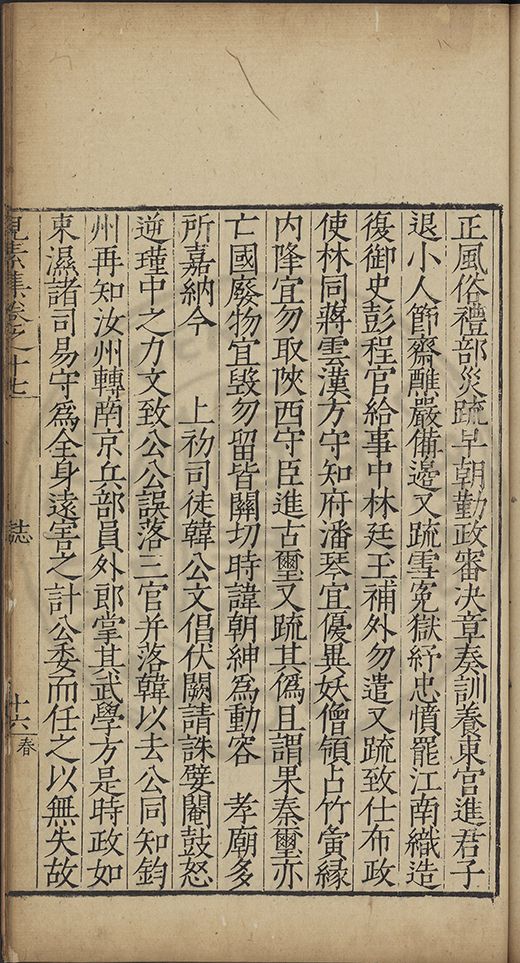 正風俗禮部災疏早朝勤政審決章奏訓養東宮進君子
退小人節齋醮嚴備邊又疏雪冤獄紓忠憤罷江南織造
復御史彭程官給事中林廷玉補外勿遣又疏致仕布政
使林同蔣雲漢方守知府潘琴宜優異妖僧領占竹夤縁
内降宜勿取陜西守臣進古璽又疏其僞且謂果秦璽亦
亡國廢物宜毀勿留皆關切時諱朝紳為動容　孝廟多
所嘉納今　上初司徒韓公文倡伏闕請誅嬖閹鼓怒
逆瑾中之力文致公公誤落三官并落韓以去公同知鈞
州再知汝州轉南京兵部員外郎掌其武學方是時政如
東濕諸司易守為全身遠害之計公委而任之以無失故
見素集卷之十七
誌
十六
春